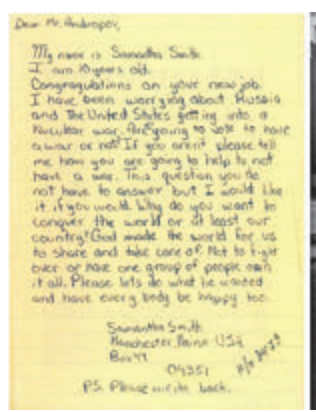 Dear Mr. Andropov,
My name is Samantha Smith.
I am 10 years old.
Congratulations on your new job.
I have been worrying about Russia
and The United States getting into a
Nucular war. Are going to vote to have
a war or not? If you aren't please tell
me how you are going to help to not
have a war. This question you do
not have to answer but I would like
it if you would. Why do you want to
conquer the world or at least our
country? God made the world for us
to share and take care of. Not to fight
over or have one group of people own
it all. Please lets do what he wanted
and have every body be happy too.
Samantha Smith
Manchester Maine USA
Box 44
04351
P.S. Please write back.